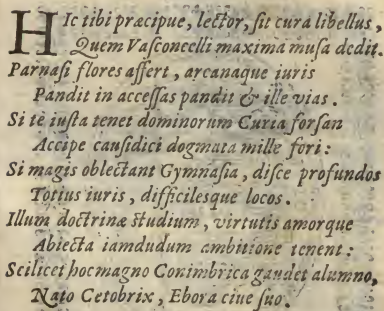 HIc tibi præcipue, lector, sit cura libellus,
Quem Vasconcelli maxima musa dedit.
Parnasi flores affert, arcanaque iuris
Pandit in accessas pandit & ille vias.
Si te iusta tenet dominorum Curia forsan
Accipe causidici dogmata mille fori:
Si magis oblectant Gymnasia, disce profundos
Totius iuris, difficilesque locos.
Illum doctrinæ studium, virtutis amorque
Abiecta iamdudum ambitione tenent:
Scilicet hoc magno Conimbrica gaudet alumno,
Nato Cetobrix, Ebora ciue suo.